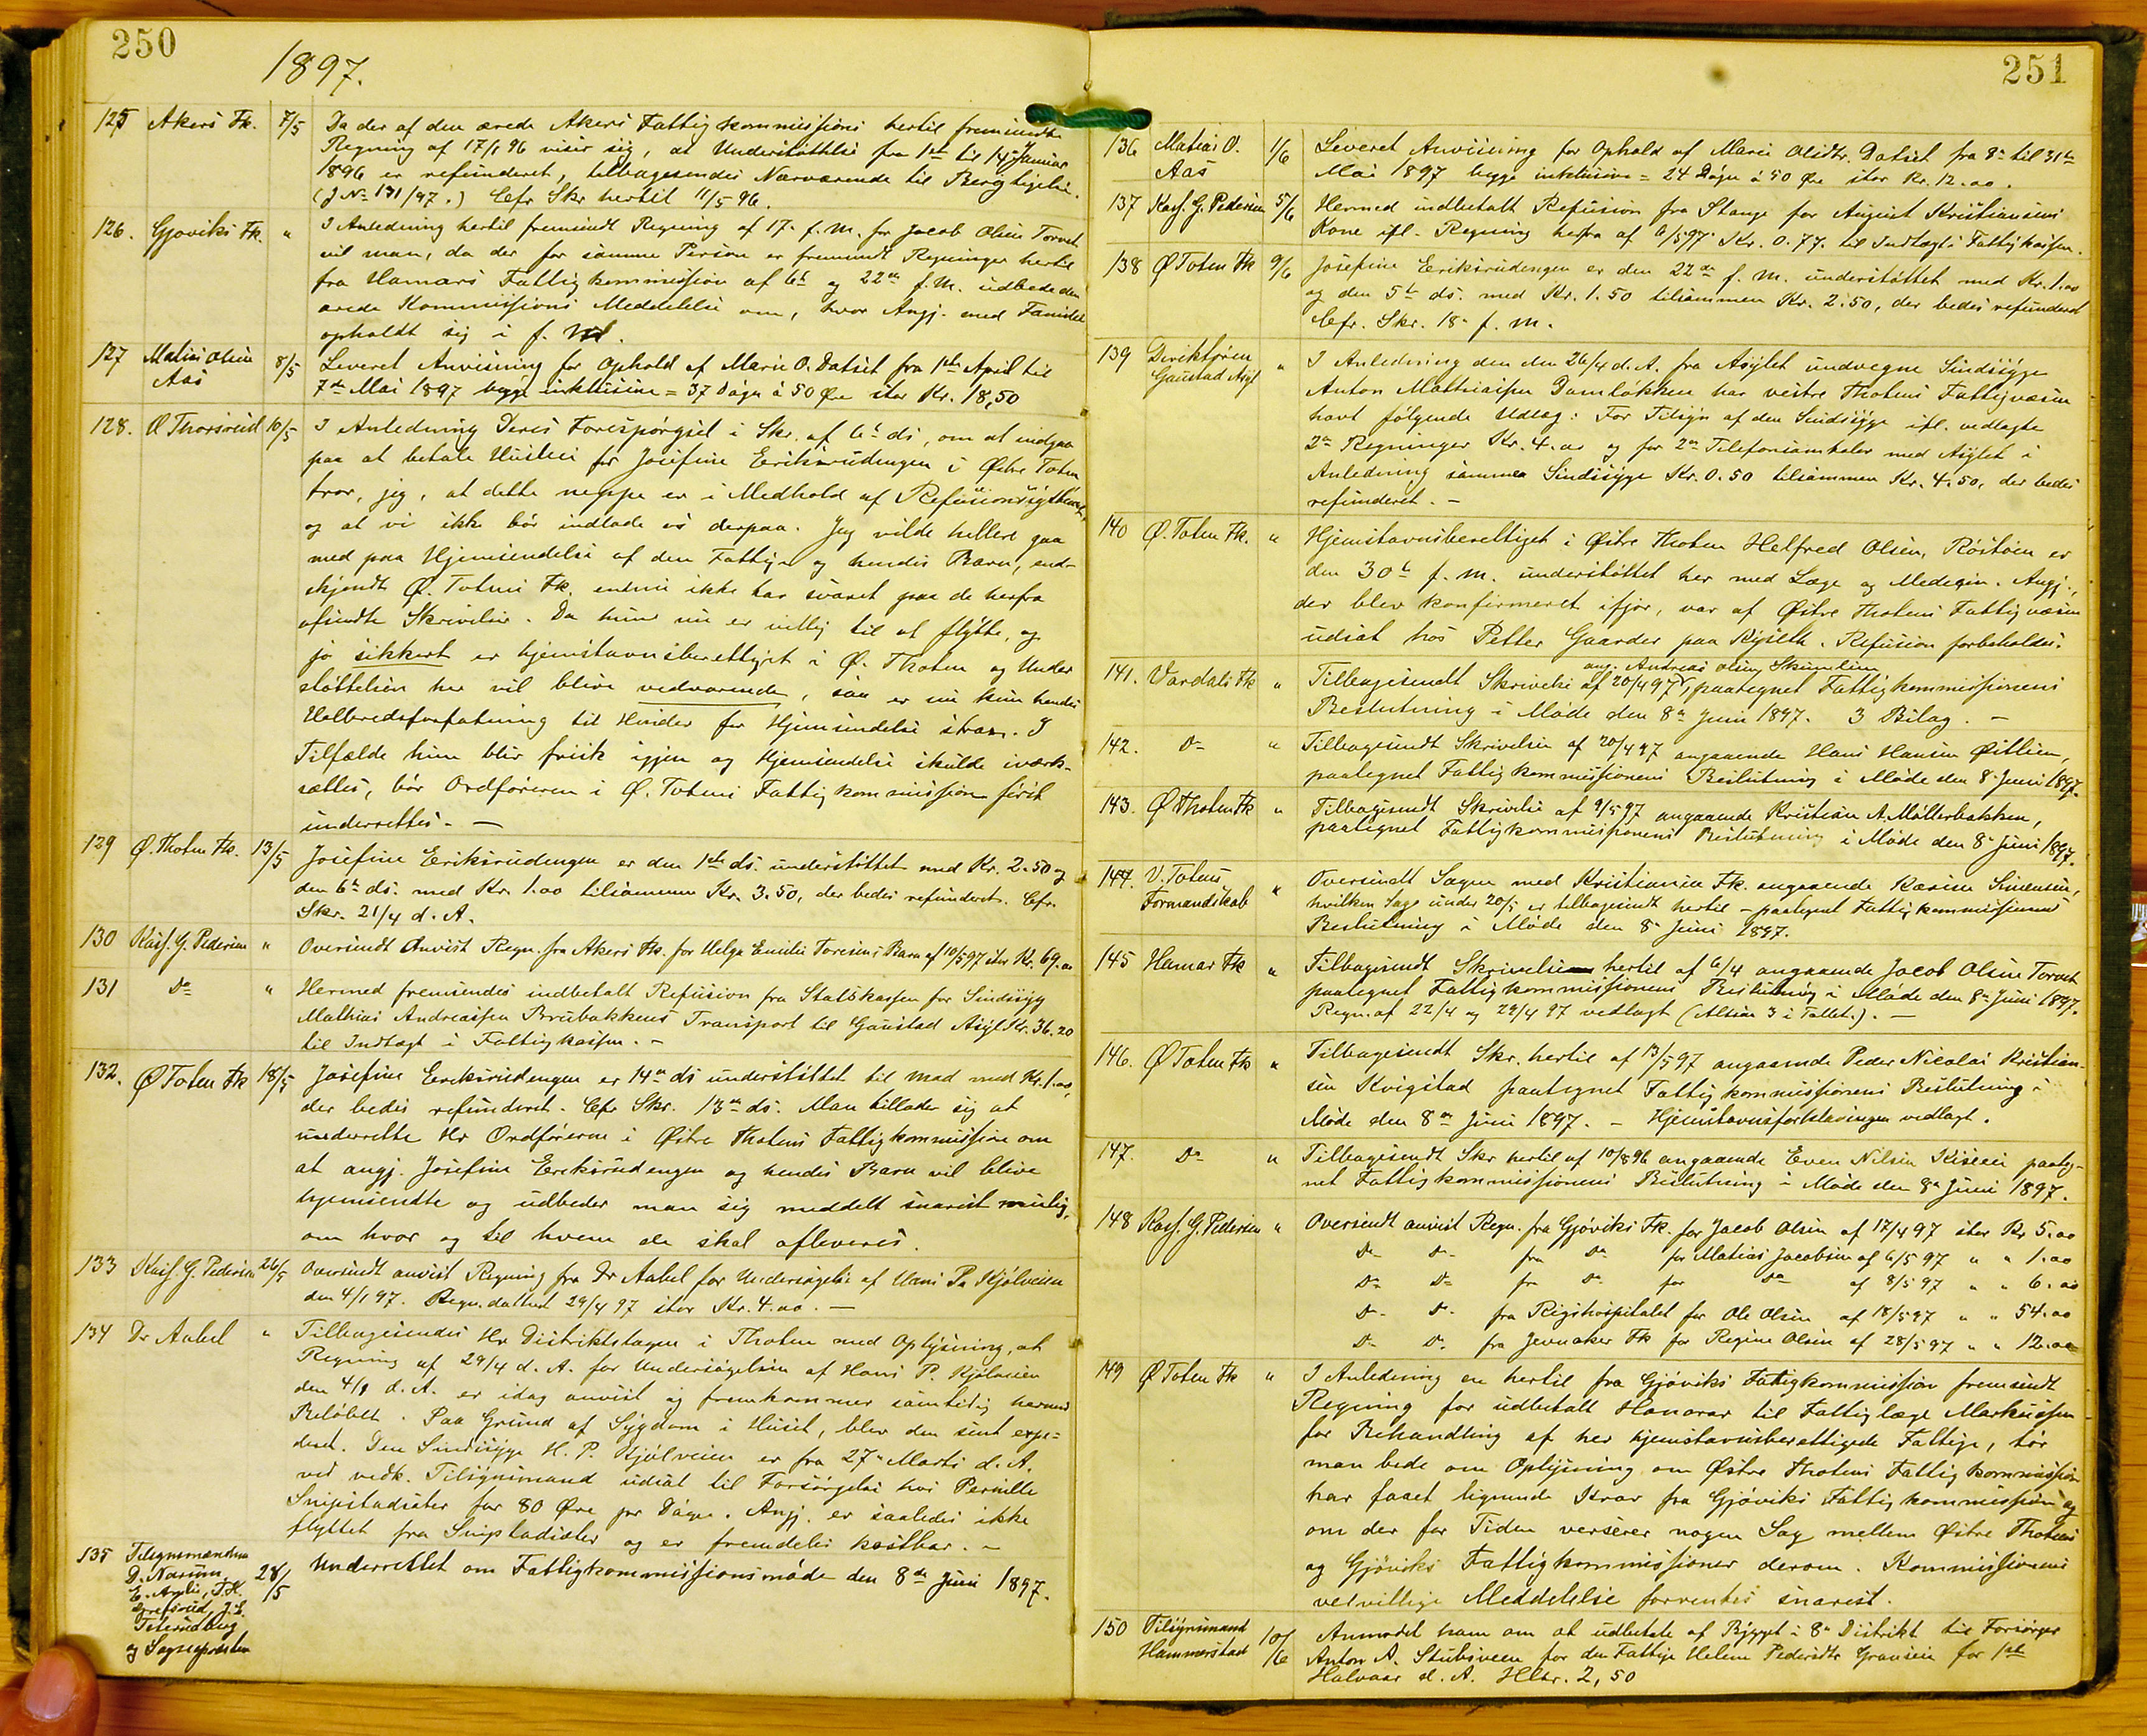 250
1897.
125 Akers Fk. 7/5 Da der af den ærede Akers Fattigkommissions hertil fremsendte
Regning af 17/1 96 viser sig, at Understøttelse fra 1ste til 14de Januar
1896 er refunderet, tilbagesendes Nærværende til Berigtigelse.
(J No 131/97.) Cfr Skr hertil 11/5 96.
126. Gjøviks Fk. " I Anledning hertil fremsendt Regning af 17. f. M. for Jacob Olsen Torvet
vil man, da der for samme Person er fremsendt Regninger hertil
fra Hamars Fattigkommission af 6te og 22de f. M. udbede den
ærede Kommissions Meddelelse om, hvor Angj. med Familie
opholdt sig i f. M.
127 Matias Olsen Aas 8/5 Leveret Anvisning for Ophold af Marie O. Datset fra 1ste April til
7de Mai 1897 begge inklusive = 37 Dage á 50 Øre stor Kr. 18,50
128. O Thorsrud 10/5 I Anledning Deres Forespørgsel i Skr. af 6te ds, om at indgaa
paa at betale Husleie for Josefine Eriksrudengen i Østre Toten
tror, jeg, at dette neppe er i Medhold af
og at vi ikke bør indlade os derpaa. Jeg vilde hellere gaa
med paa Hjemsendelse af den Fattige og hendes Barn, end-
skjøndt Ø. Totens Fk. endnu ikke har svaret paa de herfra
afsendte Skrivelser. Da hun nu er villig til at flytte, og
jo sikkert er hjemstavnsberettiget i Ø. Thoten og Under
støttelsen her vil blive vedvarende saa er nu kun hendes
Helbredsforfatning til Hinder for Hjemsendelse strax. I
Tilfælde hun blir frisk igjen og Hjemsendelse skulde iværk-
sættes, bør Ordføreren i Ø. Totens Fattigkommission først
underrettes. —
129 Ø. Thoten Fk. 13/5 Josefine Eriksrudengen er den 1ste ds. understøttet med Kr. 2.50 og
den 6te ds. med Kr. 1.00 tilsammen Kr. 3.50, der bedes refunderet. Cfr.
Skr. 21/4 d. A.
130 Kass. G. Pedersen " Oversendt Anvist Regn. fra Akers Fk. for Helga Emilie Toresens Barn af 10/5 97 stor Kr. 69.00
131 Do " Hermed fremsendes indbetalt Refusion fra Statskassen for Sindssyg
Mathias Andreassen Brubakkens Transport til Gaustad Asyl Kr. 36.20
til Indtægt i Fattigkassen. -
132. Ø Toten Fk 18/5 Josefine Eriksrudengen er 14de ds understøttet til Mad med Kr. 1.00,
der bedes refunderet. Cfr Skr. 13de ds. Man tillader sig at
underrette Hr Ordføreren i Østre Thotens Fattigkommission om
at angj. Josefine Eriksrudengen og hendes Barn vil blive
hjemsendte og udbeder man sig meddelt snarest mulig,
om hvor og til hvem de skal afleveres.
133 Kass. G. Pedersen 26/5 Oversendt anvist Regning fra Dr Aabel for Undersøgelse af Hans P. Kjølveien
den 4/1 97. Regn. dateret 29/4 97 stor Kr. 4.00. —
134 Dr Aabel " Tilbagesendes Hr Distriktslægen i Thoten med Oplysning, at
Regning af 29/4 d. A. for Undersøgelsen af Hans P. Kjølveien
den 4/1 d. A. er idag anvist og fremkommer samtidig hermed
Beløbet. Paa Grund af Sygdom i Huset, blev den sent expe=
deret. Den Sindssyge H. P. Kjølveien er fra 27de Marts d. A.
ved vedk. Tilsynsmand udsat til Forsørgelse hos Pernille
Snipstadsæter for 80 Øre pr Døgn. Angj. er saaledes ikke
flyttet fra Snipstadsæter og er fremdeles kostbar. -
135 Tilsynsmændene D. Narum, 28/5 Underrettet om Fattigkommissionsmøde den 8de Juni 1897.
og Sognepresten
251
136 Matias O. Aas 1/6 Leveret Anvisning for Ophold af Marie Olsdtr. Datset fra 8de til 31te
Mai 1897 begge inklusive = 24 Dage á 50 Øre stor Kr. 12.00.
137 Kass. G. Pedersen 5/6 Hermed indbetalt Refusion fra Stange for August Kristiansens
Kone ifl. Regning herfra af 6/5 97 Kr. 0.77. til Indtægt i Fattigkassen.
138 Ø Toten Fk 9/6 Josefine Eriksrudengen er den 22de f. M. understøttet med Kr. 1.00
og den 5te ds. med Kr. 1.50 tilsammen Kr. 2.50, der bedes refunderet
Cfr. Skr. 18de f. M.
139 Direktøren Gaustad Asyl " I Anledning den den 26/4 d. A. fra Asylet undvegne Sindssyge
Anton Mathiassen Damløkken har vestre Thotens Fattigvæsen
havt følgende Udlæg: For Tilsyn af den Sindssyge ifl. vedlagte
2de Regninger Kr. 4.00 og for 2de Telefonsamtaler med Asylet i
Anledning samme Sindssyge Kr. 0.50 tilsammen Kr. 4.50, der bedes
refunderet. -
140 Ø. Toten Fk. " Hjemstavnsberettiget i Østre Thoten Helfred Olsen, Røstøen er
den 30te f. M. understøttet her med Læge og Medecin. Angj.,
der blev konfirmeret ifjor, var af Østre Thotens Fattigvæsen
udsat hos Petter Gaarder paa Kyseth. Refusion forbeholdes.
141. Vardals Fk " Tilbagesendt Skrivelse af 20/4 97 ang. Andreas Olsen Skumlien, paategnet Fattigkommissionens
Beslutning i Møde den 8de Juni 1897. 3 Bilag. -
142. Do " Tilbagesendt Skrivelse af 20/4 97 angaaende Hans Hansen Østlien,
paategnet Fattigkommissionens Beslutning i Møde den 8de Juni 1897.
143. Ø Thoten Fk " Tilbagesendt Skrivelse af 9/5 97 angaaende Kristian A. Møllerbakken,
paategnet Fattigkommissionens Beslutning i Møde den 8de Juni 1897.
144. V. Totens Formandskab " Oversendt Sagen med Kristiania Fk. angaaende Karine Simensen,
hvilken Sag under 20/5 er tilbagesendt hertil - paategnet Fattigkommissionens
Beslutning i Møde den 8de Juni 1897.
145 Hamar Fk " Tilbagesendt Skrivelse hertil af 6/4 angaaende Jacob Olsen Torvet
paategnet Fattigkommissionens Beslutning i Møde den 8de Juni 1897.
Regn. af 22/4 og 29/4 97 vedlagt (Altsaa 3 i Tallet.). -
146. Ø Toten Fk " Tilbagesendt Skr. hertil af 13/5 97 angaaende Peder Nicolai Kristian-
sen Kvigstad paategnet Fattigkommissionens Beslutning i
Møde den 8de Juni 1897. - Hjemstavnsforklaringen vedlagt.
147. Do " Tilbagesendt Skr hertil af 10/8 96 angaaende Even Nilsen paateg-
net Fattigkommissionens Beslutning i Møde den 8de Juni 1897.
148 Kass. G. Pedersen " Oversendt anvist Regn. fra Gjøviks Fk. for Jacob Olsen af 17/4 97 stor Kr 5.00
Do Do fra Do for Matias Jacobsen af 6/5 97 " " 1.00
Do Do fr Do for Do af 8/5 97 " " 6.00
Do Do fra Rigshospitalet for Ole Olsen af 18/5 97 " " 54.00
Do Do fra Jevnaker Fk for Regine Olsen af 28/5 97 " " 12.00
149 Ø Toten Fk " I Anledning en hertil fra Gjøviks Fattigkommission fremsendt
Regning for udbetalt Honorar til Fattiglæge Markussen
for Behandling af her hjemstavnsberettigede Fattige, tør
man bede om Oplysning om Østre Thotens Fattigkommission
har faaet lignende Krav fra Gjøviks Fattigkommission og
om der for Tiden verserer nogen Sag mellem Østre Thotens
og Gjøviks Fattigkommissioner derom. Kommissionens
velvillige Meddelelse forventes snarest.
150 Tilsynsmand Hammerstad 10/6 Anmodet ham om at udbetale af Bygget i 8de Distrikt til Forsørger
Anton A. Stubsveen for den Fattige Helene Pedersdtr for 1ste
Halvaar d. A. 2,50